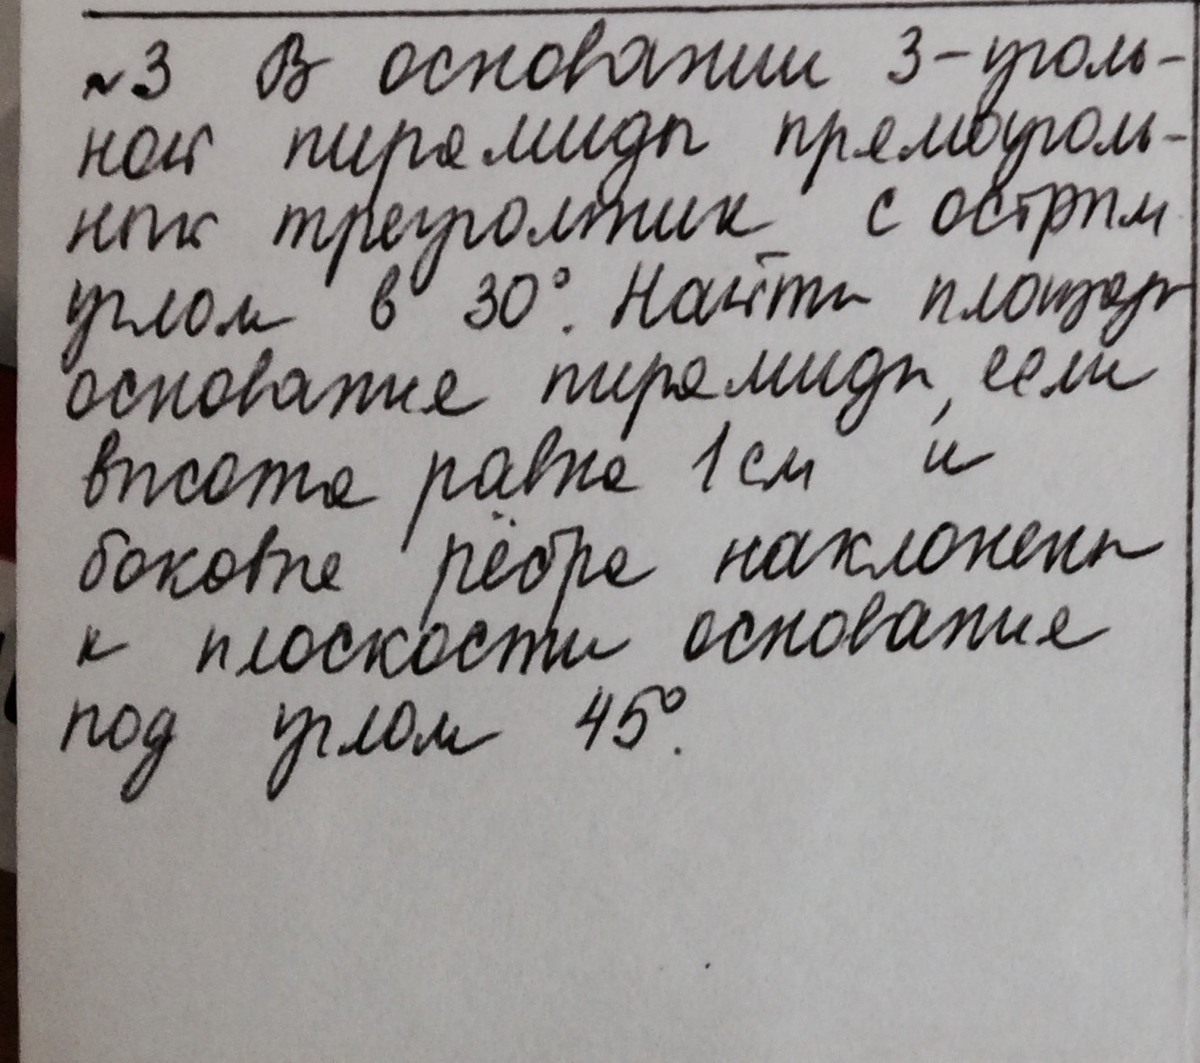 №3 В основании 3-уголь-
ной пирамиды прямоуголь-
ный треугольник с острым
углом в 30°. Найти площадь
основания пирамиды, если
высота равна 1 см и
боковые рёбра наклонены
к плоскости основания
под углом 45°.